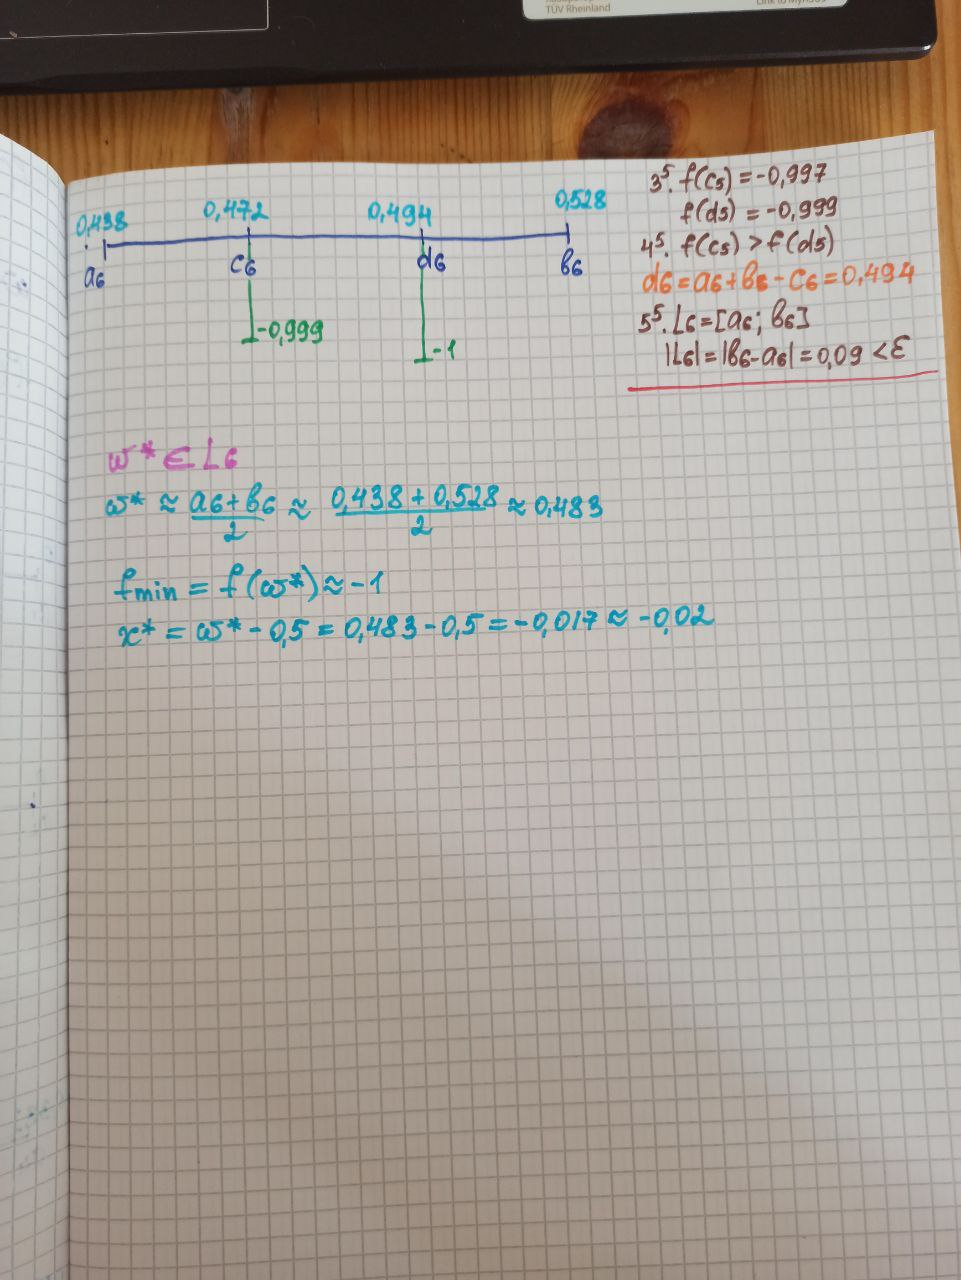 TÜV Rheinland
0,438 0,472 0,494 0,528
a₆ c₆ d₆ b₆
-0,999
-1
3⁵. f(c₅) = -0,997
f(d₅) = -0,999
4⁵. f(c₅) > f(d₅)
d₆ = a₆ + b₆ - c₆ = 0,494
5⁵. L₆ = [a₆; b₆]
|L₆| = |b₆ - a₆| = 0,09 < ε
w* ∈ L₆
w* ≈ (a₆ + b₆)/2 ≈ (0,438 + 0,528)/2 ≈ 0,483
fmin = f(w*) ≈ -1
x* = w* - 0,5 = 0,483 - 0,5 = -0,017 ≈ -0,02